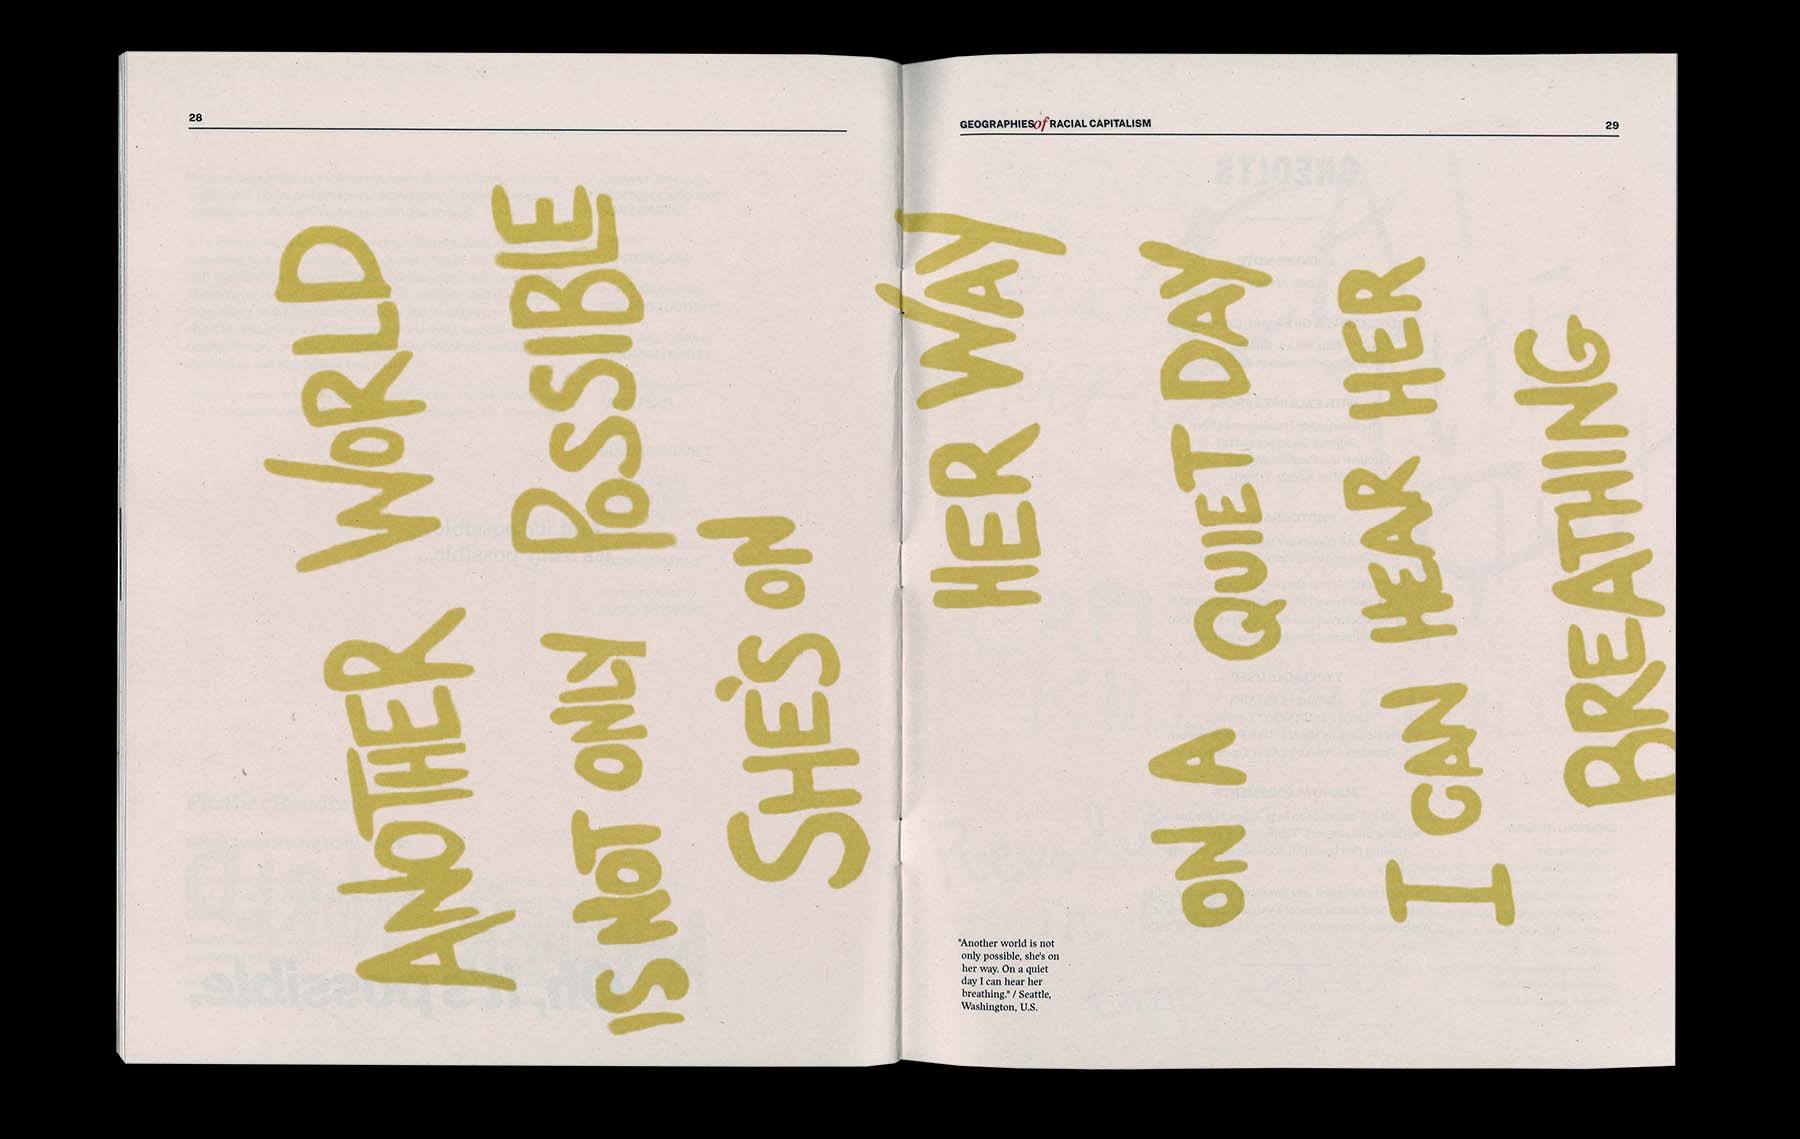 28
ANOTHER WORLD
IS NOT ONLY POSSIBLE
SHE'S ON
GEOGRAPHIES of RACIAL CAPITALISM
29
HER WAY
ON A QUIET DAY
I CAN HEAR HER
BREATHING
"Another world is not
only possible, she's on
her way. On a quiet
day I can hear her
breathing." / Seattle,
Washington, U.S.